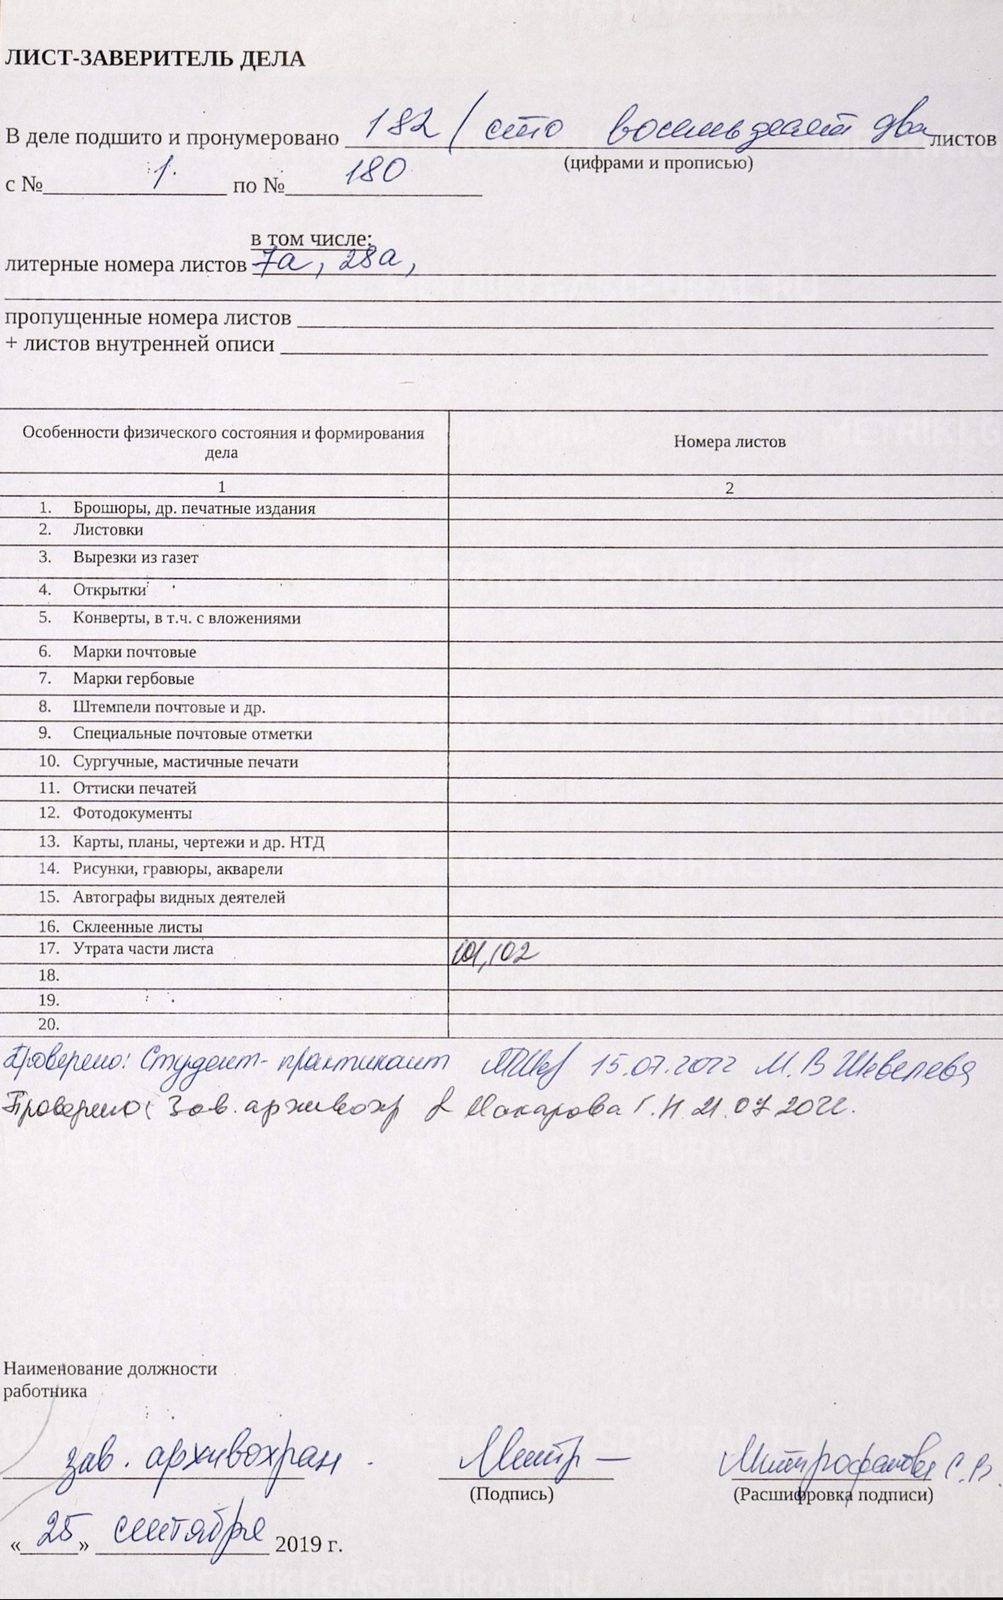 ЛИСТ-ЗАВЕРИТЕЛЬ ДЕЛА
В деле подшито и пронумеровано 182 / сто восемьдесят два листов
(цифрами и прописью)
с № 1. по № 180
в том числе:
литерные номера листов 7а, 28а,
пропущенные номера листов
+ листов внутренней описи
Особенности физического состояния и формирования
дела
Номера листов
1 2
1. Брошюры, др. печатные издания
2. Листовки
3. Вырезки из газет
4. Открытки
5. Конверты, в т.ч. с вложениями
6. Марки почтовые
7. Марки гербовые
8. Штемпели почтовые и др.
9. Специальные почтовые отметки
10. Сургучные, мастичные печати
11. Оттиски печатей
12. Фотодокументы
13. Карты, планы, чертежи и др. НТД
14. Рисунки, гравюры, акварели
15. Автографы видных деятелей
16. Склеенные листы
17. Утрата части листа 101, 102
18.
19.
20.
Проверено: Студент-практикант 15.07.2022 М.В Шевелева
Проверено: Зав. архивохр Макарова Г.Н 21.07.2022.
Наименование должности
работника
зав. архивохран. Митрофанова С.В.
(Подпись) (Расшифровка подписи)
«25» сентября 2019 г.
METRIKI.GASO-URAL.RU